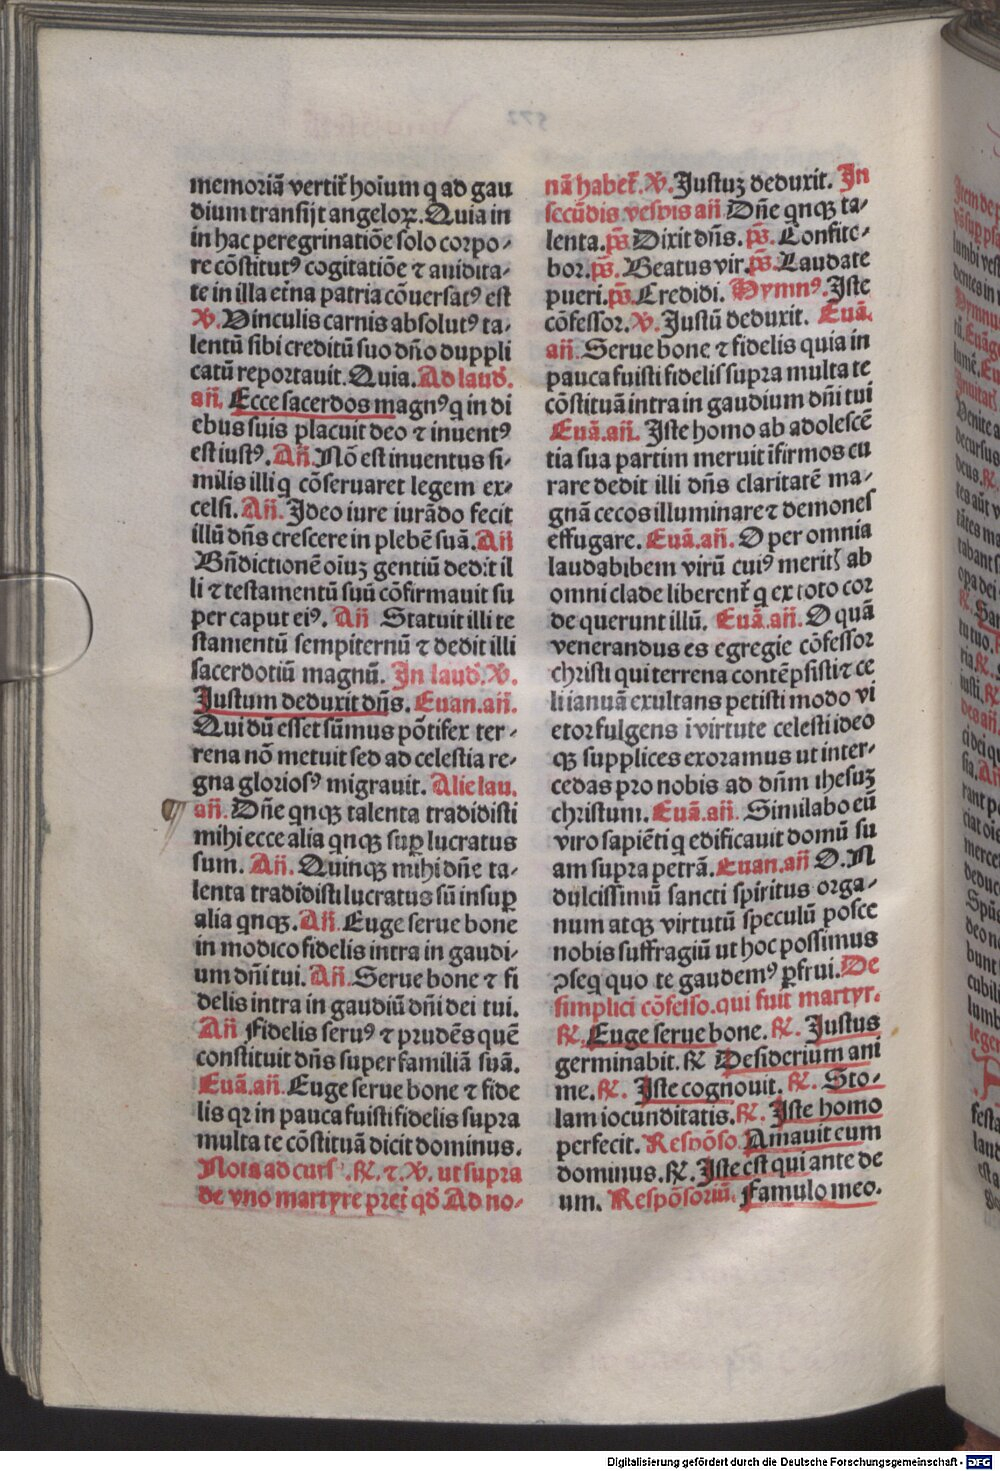 memoriā vertit᷑ hoīum q ad gau
dium transijt angeloꝝ. Quia in
in hac peregrinatiōe solo corpo⸗
re cōstitutꝰ cogitatiōe ⁊ auidita⸗
te in illa et᷑na patria cōuersatꝰ est
℣. Vinculis carnis absolutꝰ ta⸗
lentū sibi creditū suo dn̄o duppli
catū reportauit. Quia. Ad laud̛.
añ. Ecce sacerdos magnꝰ q in di
ebus suis placuit deo ⁊ inuentꝰ
est iustꝰ. Añ. Nō est inuentus si⸗
milis illi q cōseruaret legem ex⸗
celsi. Añ. Ideo iure iurādo fecit
illū dn̄s crescere in plebē suā. Añ
Bn̄dictionē oīuꝫ gentiū dedit il
li ⁊ testamentū suū cōfirmauit su
per caput eiꝰ. Añ Statuit illi te
stamentū sempiternū ⁊ dedit illi
sacerdotiū magnū. In laud̛. ℣.
Justum deduxit dn̄s. Euan. añ.
Qui dū esset sūmus pōtifex ter⸗
rena nō metuit sed ad celestia re⸗
gna gloriosꝰ migrauit. Alie lau.
añ. Dn̄e qnqꝫ talenta tradidisti
mihi ecce alia qnqꝫ suꝑ lucratus
sum. Añ. Quinqꝫ mihi dn̄e ta⸗
lenta tradidisti lucratus sū insuꝑ
alia qnqꝫ. Añ. Euge serue bone
in modico fidelis intra in gaudi⸗
um dn̄i tui. Añ. Serue bone ⁊ fi
delis intra in gaudiū dn̄i dei tui.
Añ Fidelis seruꝰ ⁊ prudēs quē
constituit dn̄s super familiā suā.
Euā. añ. Euge serue bone ⁊ fide
lis qꝛ in pauca fuisti fidelis supra
multa te cōstituā dicit dominus.
Nota ad curs̛. ℟. ⁊ ℣. ut supra
de vno martyre prei qd̛. Ad no⸗
nā habet᷑. ℣. Justuꝫ deduxit. In
secūdis vespis añ Dn̄e qnqꝫ ta⸗
lenta. pͫs Dixit dn̄s. pͫs. Confite⸗
bor. pͫs. Beatus vir. pͫs. Laudate
pueri. pͫs. Credidi. Hymnꝰ. Iste
cōfessor. ℣. Justū deduxit. Euā.
añ. Serue bone ⁊ fidelis quia in
pauca fuisti fidelis supra multa te
cōstituā intra in gaudium dn̄i tui
Euā. añ. Iste homo ab adolescē
tia sua partim meruit īfirmos cu
rare dedit illi dn̄s claritatē ma⸗
gnā cecos illuminare ⁊ demones
effugare. Euā. añ. O per omnia
laudabibem virū cuiꝰ meritꝭ ab
omni clade liberent᷑ q ex toto cor
de querunt illū. Euā. añ. O quā
venerandus es egregie cōfessor
christi qui terrena contēpsisti ⁊ ce
li ianuā exultans petisti modo vi
ctor fulgens ī virtute celesti ideo
qꝫ supplices exoramus ut inter⸗
cedas pro nobis ad dn̄m ihesuꝫ
christum. Euā. añ. Similabo eū
viro sapiēti q edificauit domū su
am supra petrā. Euan. añ O. N
dulcissimū sancti spiritus orga⸗
num atqꝫ virtutū speculū posce
nobis suffragiū ut hoc possimus
ꝯseq quo te gaudemꝰ ꝑfrui. De
simplici cōfesso. qui fuit martyr.
℟. Euge serue bone. ℟. Justus
germinabit. ℟ Desiderium ani
me. ℟. Iste cognouit. ℟. Sto⸗
lam iocunditatis. ℟. Iste homo
perfecit. Respōso. Amauit eum
dominus. ℟. Iste est qui ante de
um. Respōsoriū. Famulo meo.
Digitalisierung gefördert durch die Deutsche Forschungsgemeinschaft - DFG